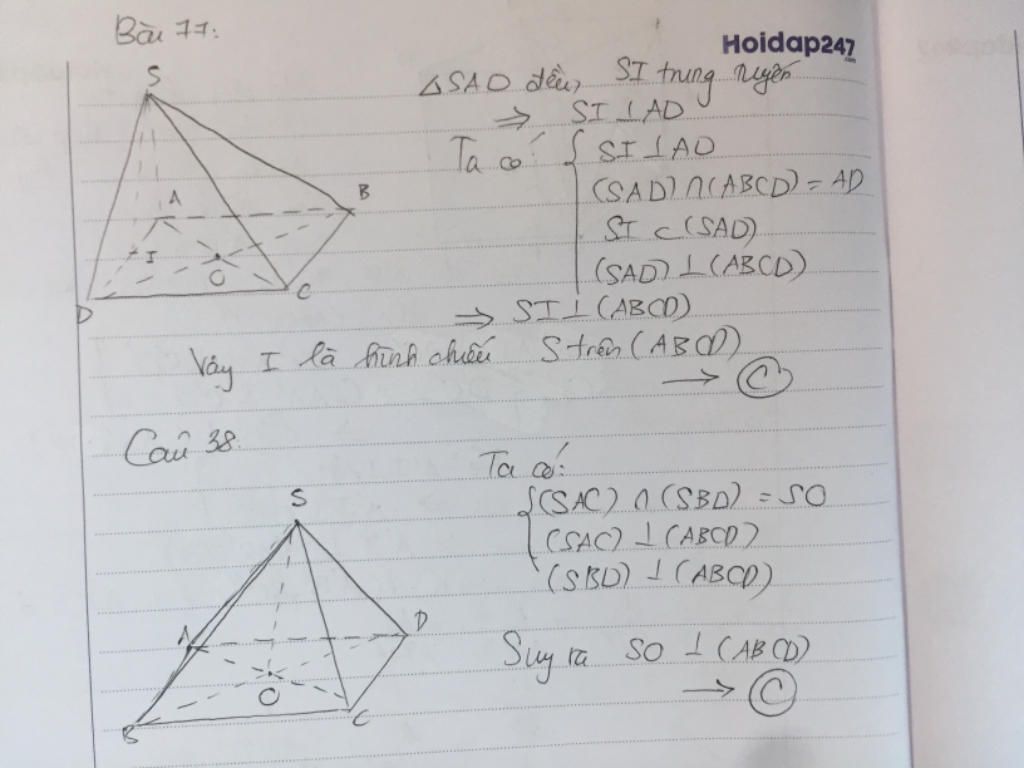 Bài 77:
Hoidap247
.com
S
A
B
I
O
C
D
△SAD đều, SI trung tuyến
⇒ SI ⊥ AD
Ta có { SI ⊥ AD
(SAD) ∩ (ABCD) = AD
SI ⊂ (SAD)
(SAD) ⊥ (ABCD)
⇒ SI ⊥ (ABCD)
Vậy I là hình chiếu S trên (ABCD)
→ C
Câu 38:
S
A
D
O
B
C
Ta có:
{ (SAC) ∩ (SBD) = SO
(SAC) ⊥ (ABCD)
(SBD) ⊥ (ABCD)
Suy ra SO ⊥ (ABCD)
→ C